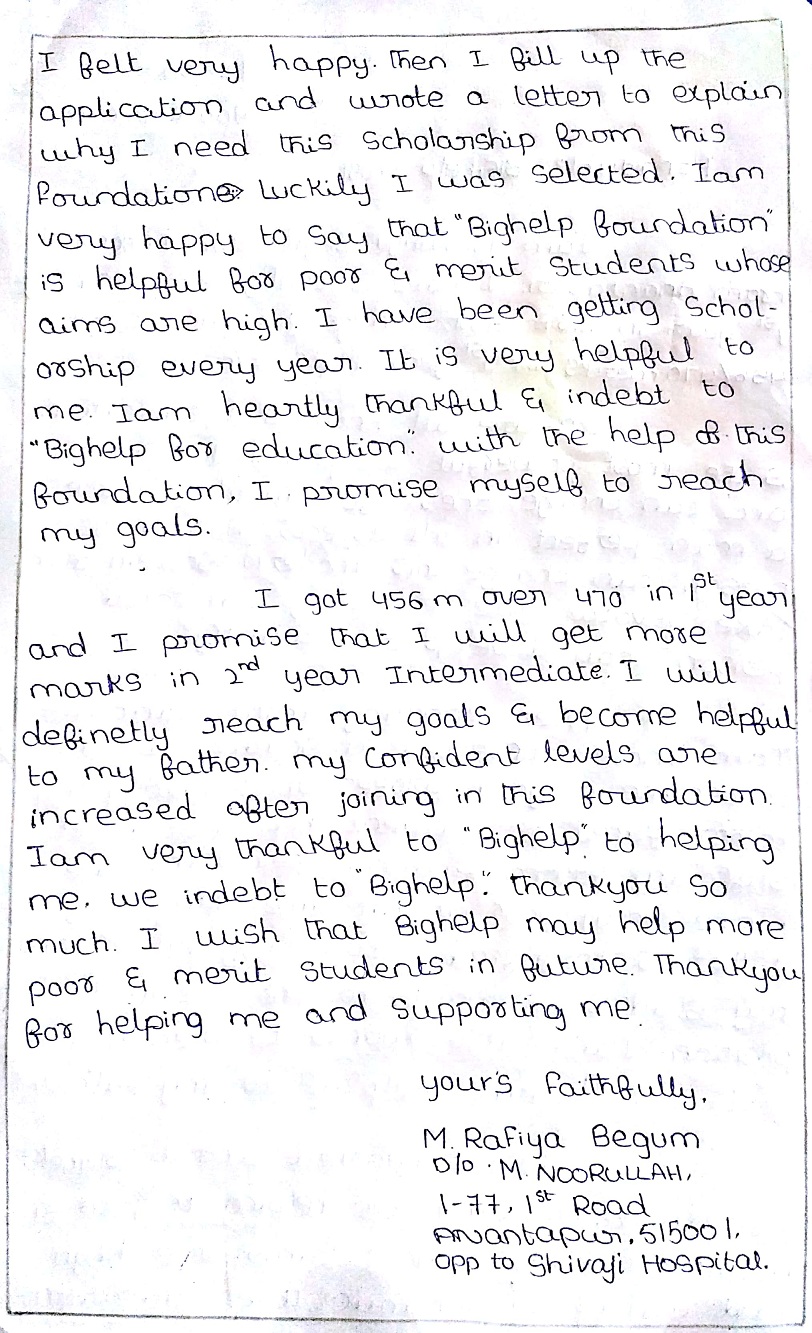 I felt very happy. Then I fill up the
application and wrote a letter to explain
why I need this Scholarship from this
foundation. Luckily I was selected. Iam
very happy to say that "Bighelp foundation"
is helpful for poor & merit students whose
aims are high. I have been getting Schol-
orship every year. It is very helpful to
me. Iam heartly thankful & indebt to
"Bighelp for education". with the help of this
foundation, I promise myself to reach
my goals.
I got 456 m over 470 in 1st year
and I promise that I will get more
marks in 2nd year Intermediate. I will
definetly reach my goals & become helpful
to my father. my confident levels are
increased after joining in this foundation.
Iam very thankful to "Bighelp" to helping
me. we indebt to "Bighelp". thankyou so
much. I wish that Bighelp may help more
poor & merit students in future. Thankyou
for helping me and supporting me.
your's faithfully,
M. Rafiya Begum
D/o. M. NOORULLAH,
1-77, 1st Road
Anantapur, 515001,
opp to Shivaji Hospital.